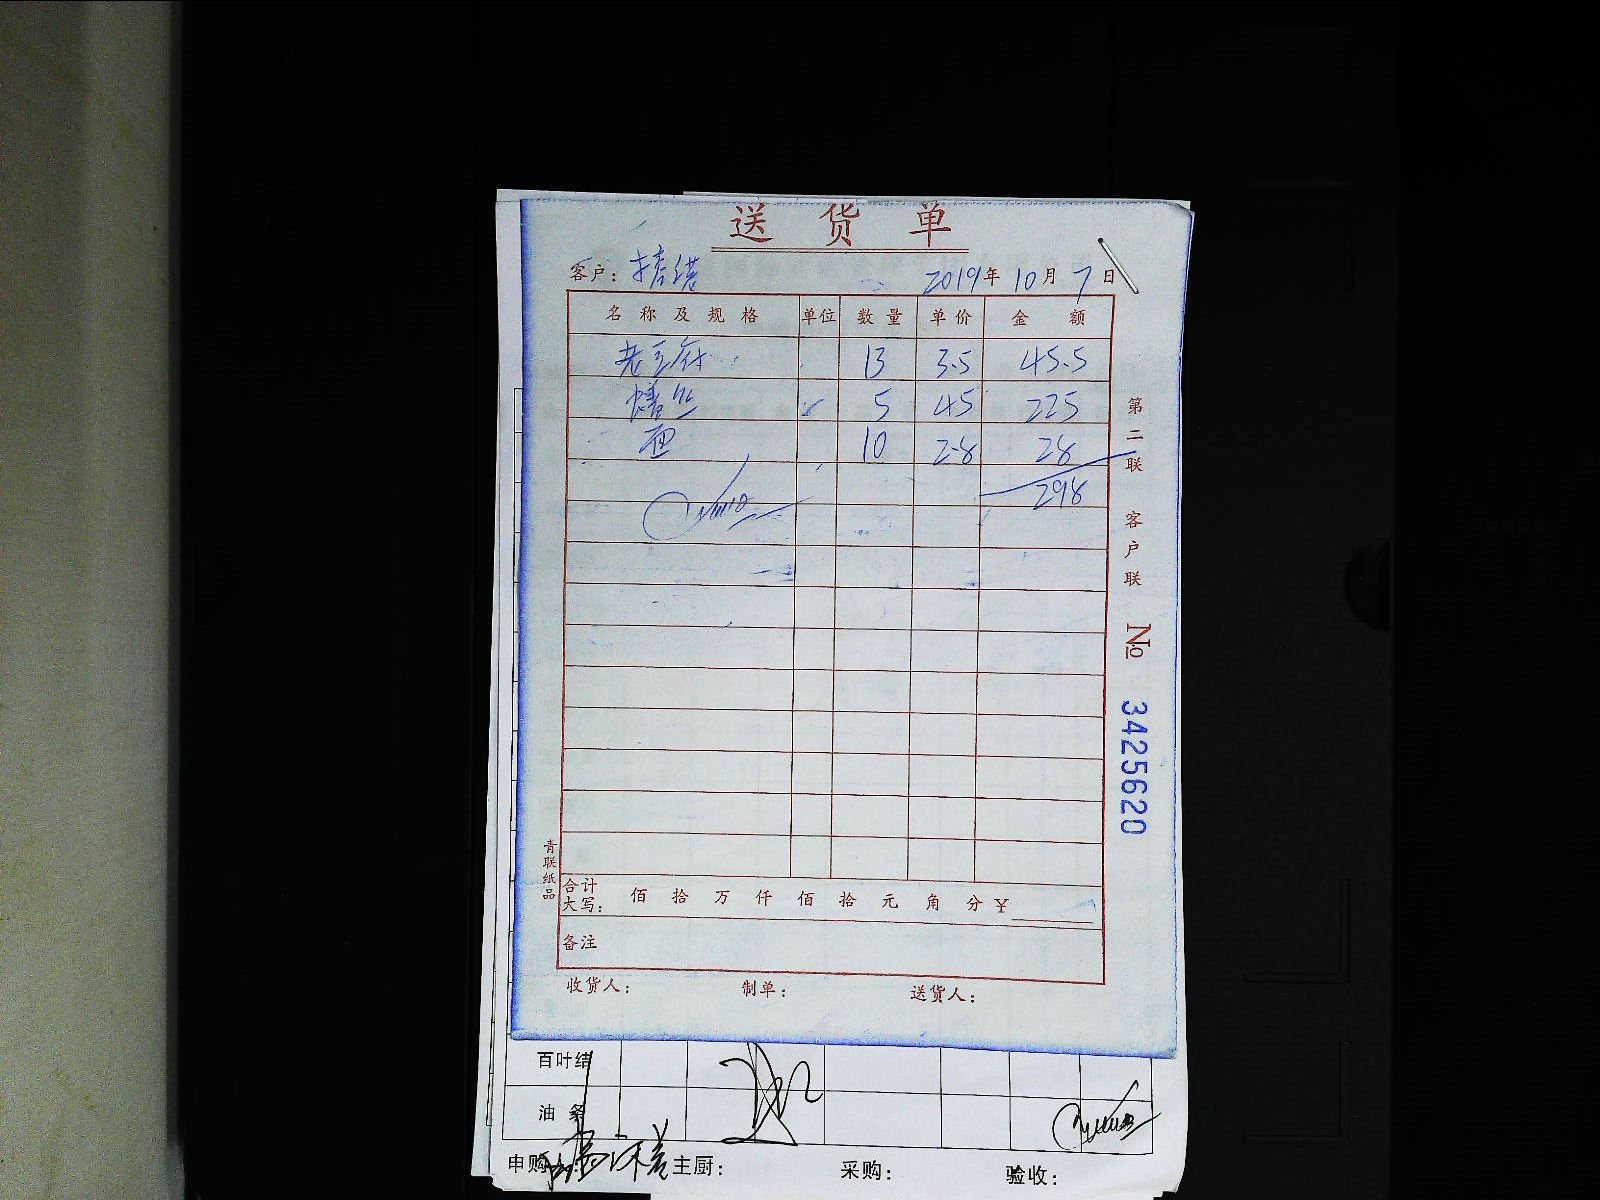 送 货 单
客户： 2019年 10月 7日
名称及规格 单位 数量 单价 金额
老豆腐 13 3.5 45.5
鳝丝 5 45 225
面 10 2.8 28
298
第二联 客户联 № 3425620
青联纸品
合计大写： 佰 拾 万 仟 佰 拾 元 角 分 ¥
备注
收货人： 制单： 送货人：
百叶结
油条
申购 主厨： 采购： 验收：